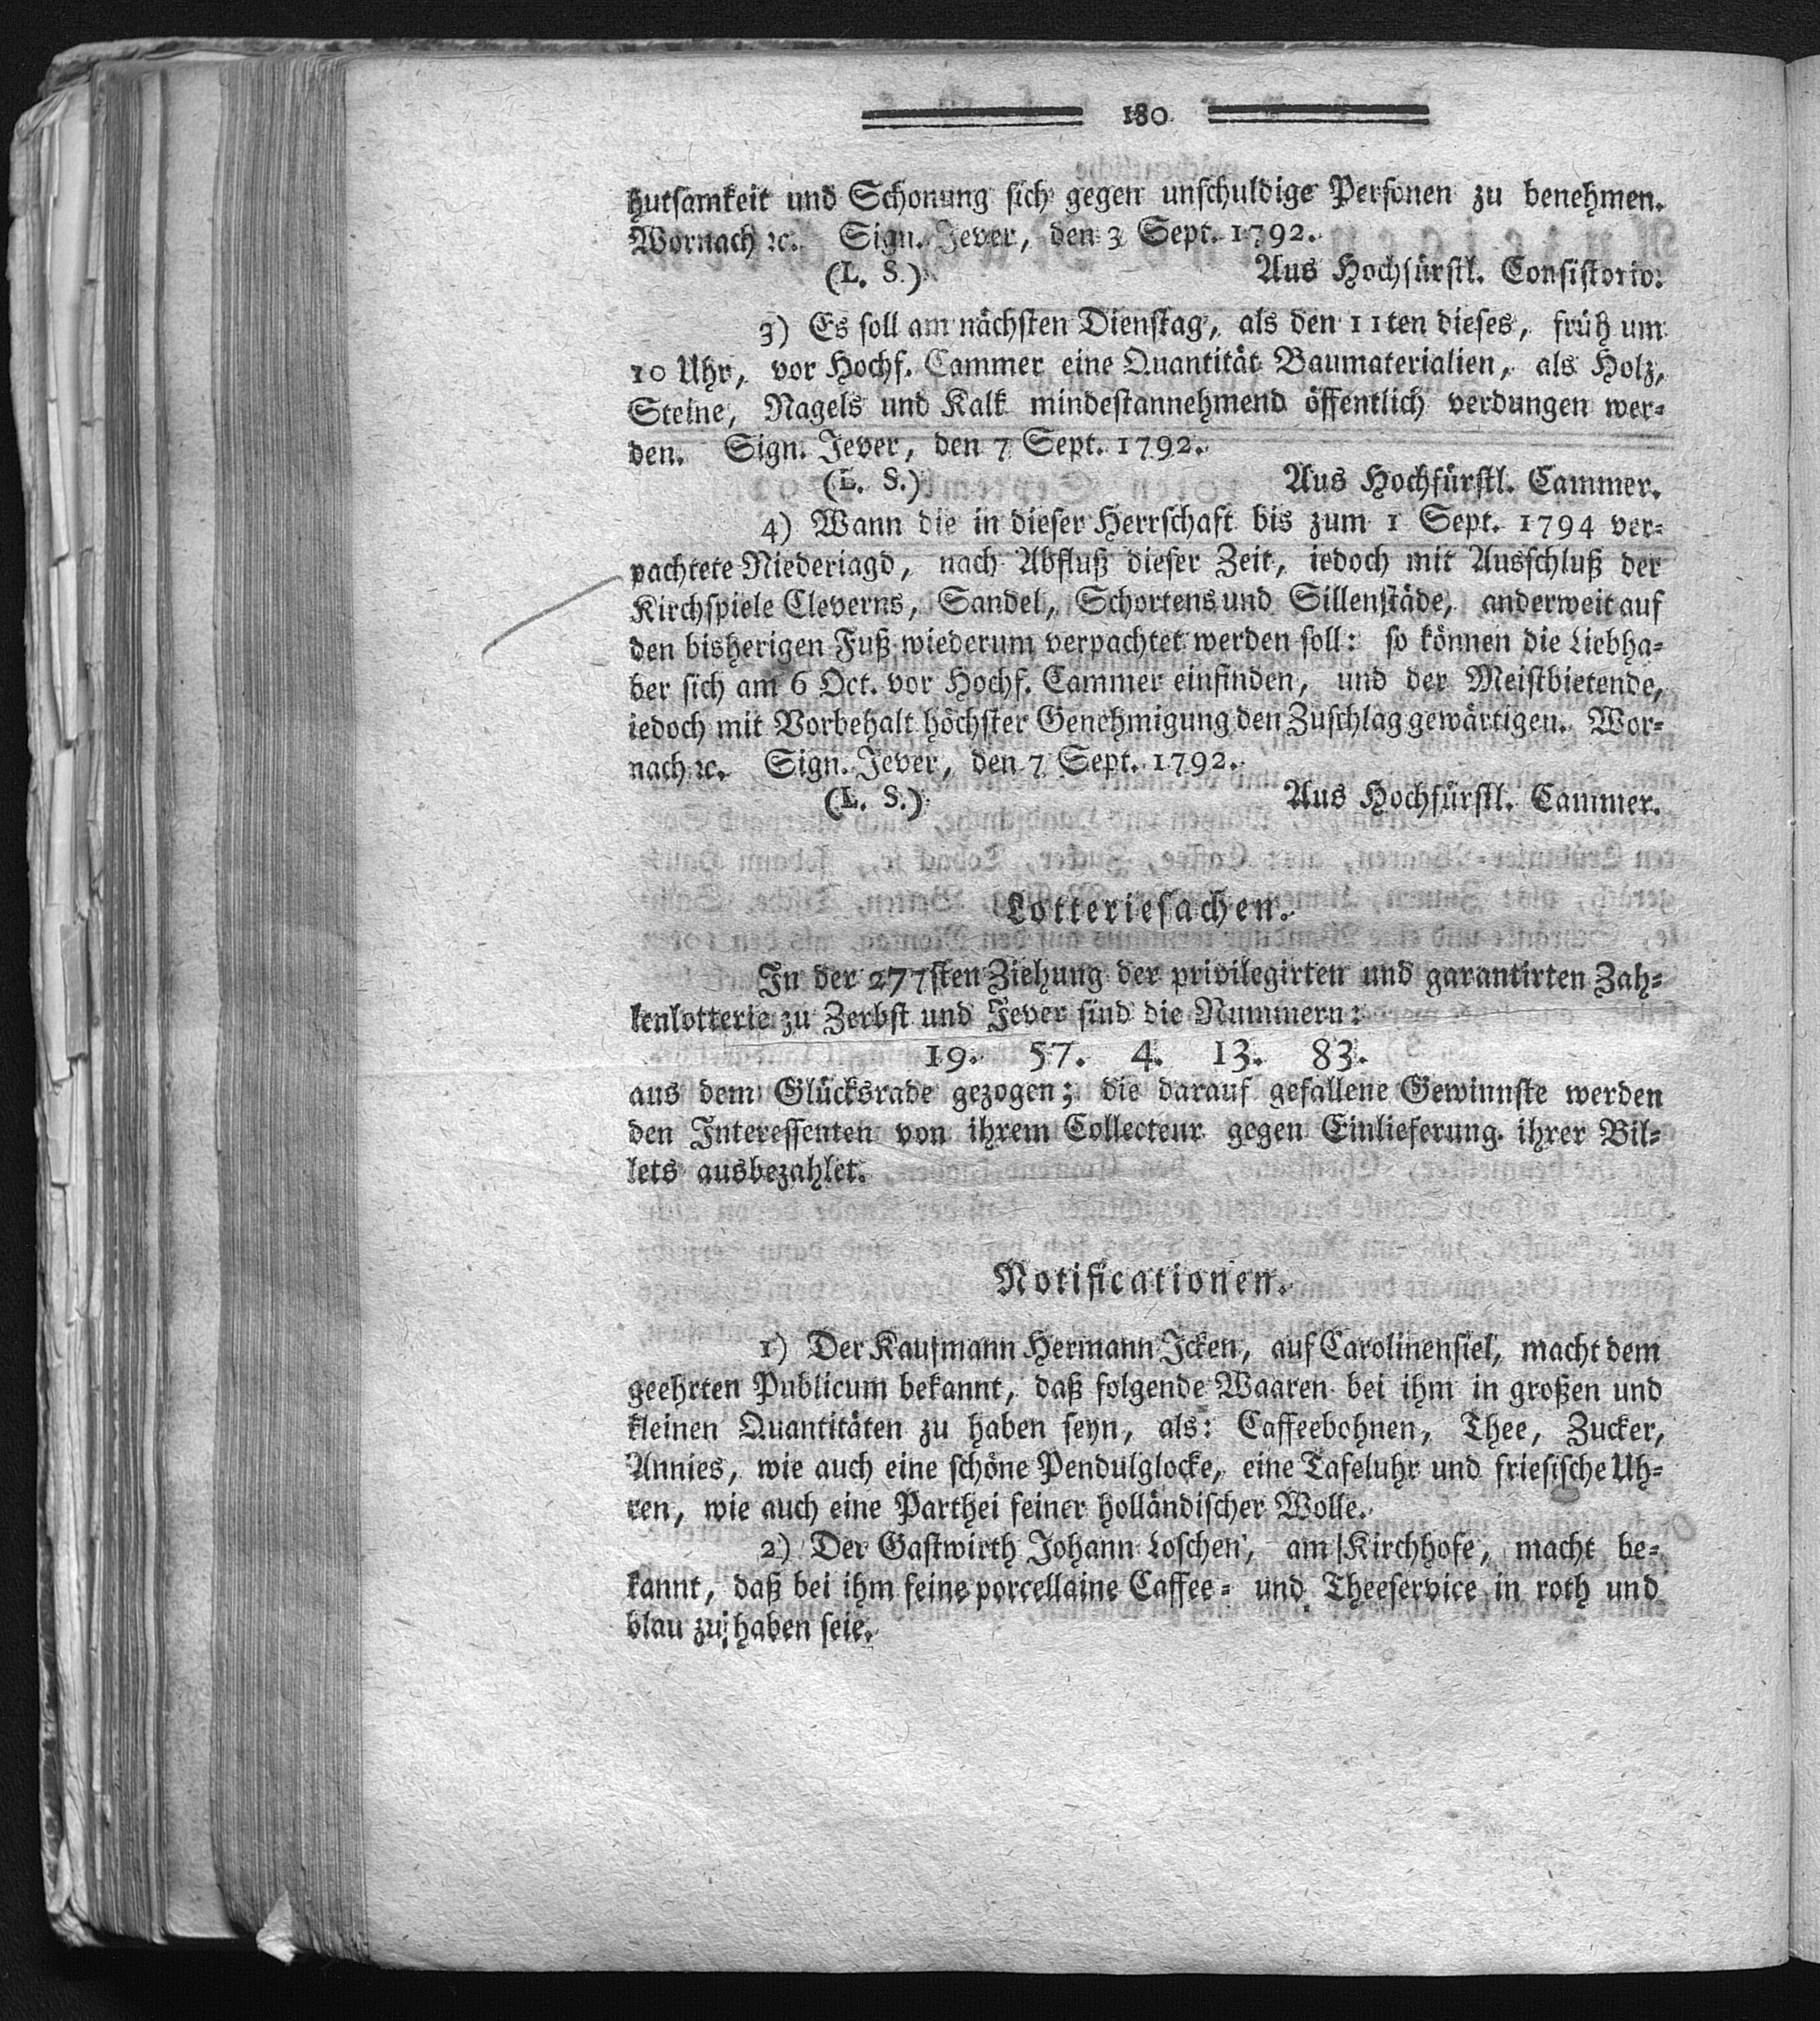 180
hutsamkeit und Schonung sich gegen unschuldige Personen zu benehmen.
Wornach ꝛc. Sign. Jever, den 3 Sept. 1792.
(L. S.) Aus Hochfürstl. Consistorio.
3) Es soll am nächsten Dienstag, als den 11ten dieses, früh um
10 Uhr, vor Hochf. Cammer eine Quantität Baumaterialien, als Holz,
Steine, Nagels und Kalk mindestannehmend öffentlich verdungen wer-
den. Sign. Jever, den 7 Sept. 1792.
(L. S.) Aus Hochfürstl. Cammer.
4) Wann die in dieser Herrschaft bis zum 1 Sept. 1794 ver-
pachtete Niederiagd, nach Abfluß dieser Zeit, iedoch mit Ausschluß der
Kirchspiele Cleverns, Sandel, Schortens und Sillenstäde, anderweit auf
den bisherigen Fuß wiederum verpachtet werden soll: so können die Liebha-
ber sich am 6 Oct. vor Hochf. Cammer einfinden, und der Meistbietende,
iedoch mit Vorbehalt höchster Genehmigung den Zuschlag gewärtigen. Wor-
nach ꝛc. Sign. Jever, den 7 Sept. 1792.
(L. S.) Aus Hochfürstl. Cammer.
Lotteriesachen.
In der 277sten Ziehung der privilegirten und garantirten Zah-
lenlotterie zu Zerbst und Jever sind die Nummern:
19. 57. 4. 13. 83.
aus dem Glücksrade gezogen; die darauf gefallene Gewinnste werden
den Interessenten von ihrem Collecteur gegen Einlieferung ihrer Bil-
lets ausbezahlet.
Notificationen.
1) Der Kaufmann Hermann Icken, auf Carolinensiel, macht dem
geehrten Publicum bekannt, daß folgende Waaren bei ihm in großen und
kleinen Quantitäten zu haben seyn, als: Caffeebohnen, Thee, Zucker,
Annies, wie auch eine schöne Pendulglocke, eine Tafeluhr und friesische Uh-
ren, wie auch eine Parthei feiner holländischer Wolle.
2) Der Gastwirth Johann Loschen, am Kirchhofe, macht be-
kannt, daß bei ihm feine porcellaine Caffee- und Theeservice in roth und
blau zu haben seie.